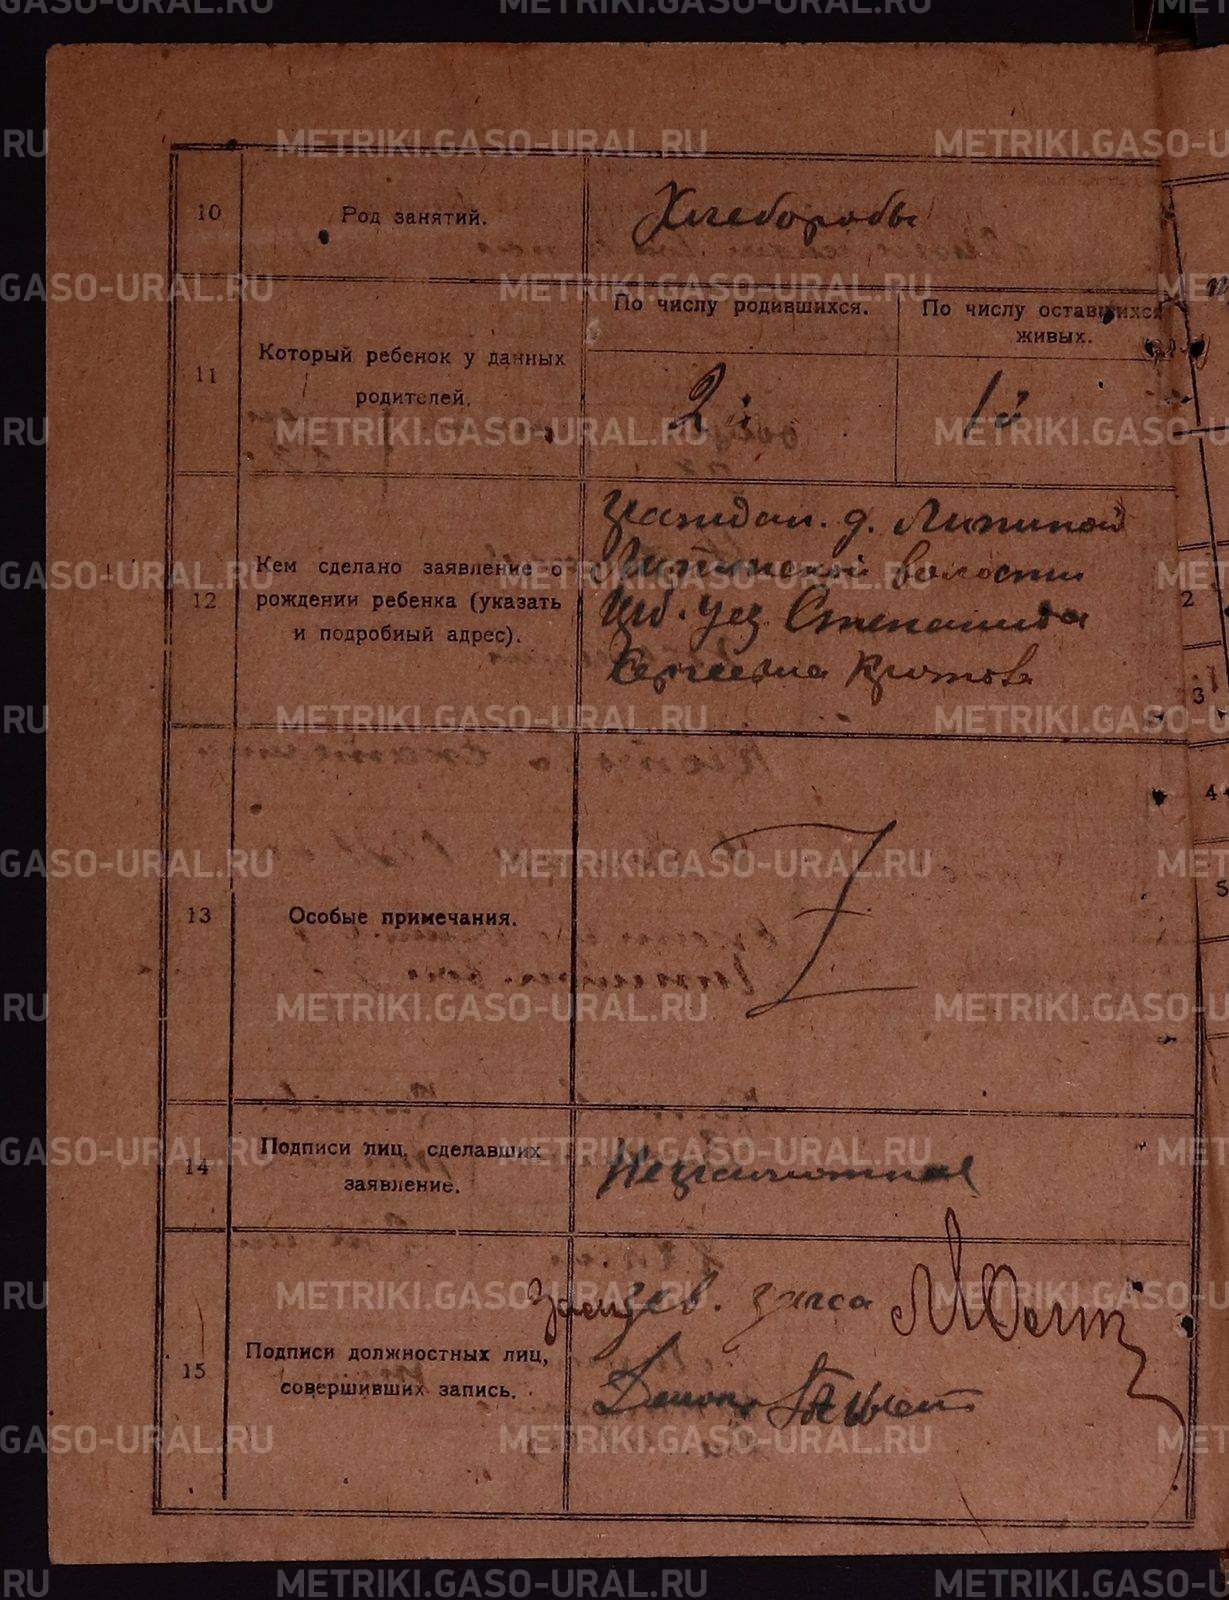 METRIKI.GASO-URAL.RU
10
Род занятий.
Хлеборобы
11
Который ребенок у данных
родителей.
По числу родившихся.
По числу оставшихся
живых.
2й
1й
12
Кем сделано заявление о
рождении ребенка (указать
и подробный адрес).
Граждан. д. Липиной
Липинской волости
Ирб. уез. Степанида
Сергеевна Кротова
13
Особые примечания.
Z
14
Подписи лиц, сделавших
заявление.
Неграмотная
15
Подписи должностных лиц,
совершивших запись.
Зам зав. загса
Делопр
2
3
4
5